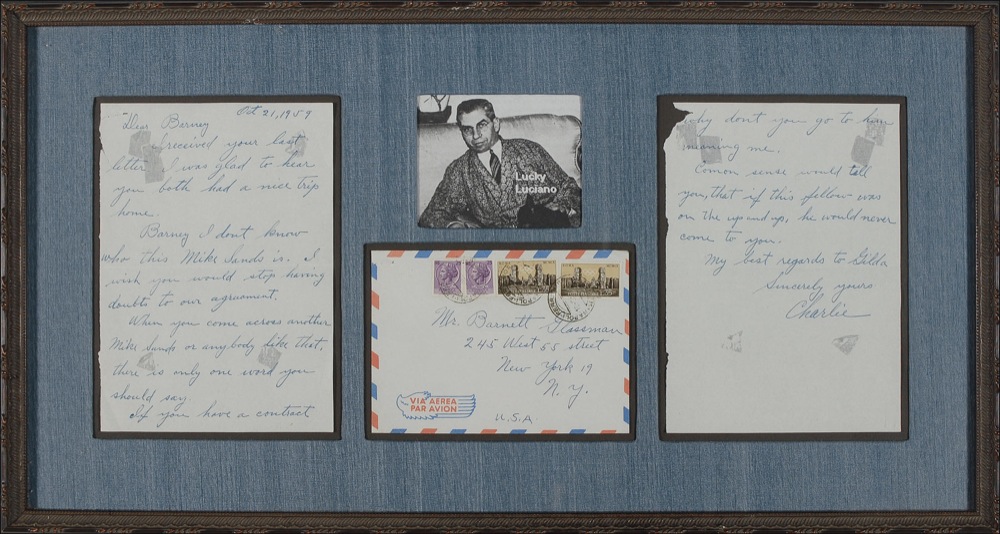 Oct 21, 1959
Dear Barney
I received your last
letter I was glad to hear
you both had a nice trip
home.
Barney I don't know
who this Mike Sands is. I
wish you would stop having
doubts to our agreament.
When you come across another
Mike Sands or anybody like that,
there is only one word you
should say.
If you have a contract
Lucky
Luciano
Mr. Barnett Glassman
245 West 55 street
New York 19
N.Y.
U.S.A.
VIA AEREA
PAR AVION
why don't you go to him
meaning me.
Comon sense would tell
you, that if this fellow was
on the up and up, he would never
come to you.
My best regards to Gilda
Sincerely yours
Charlie